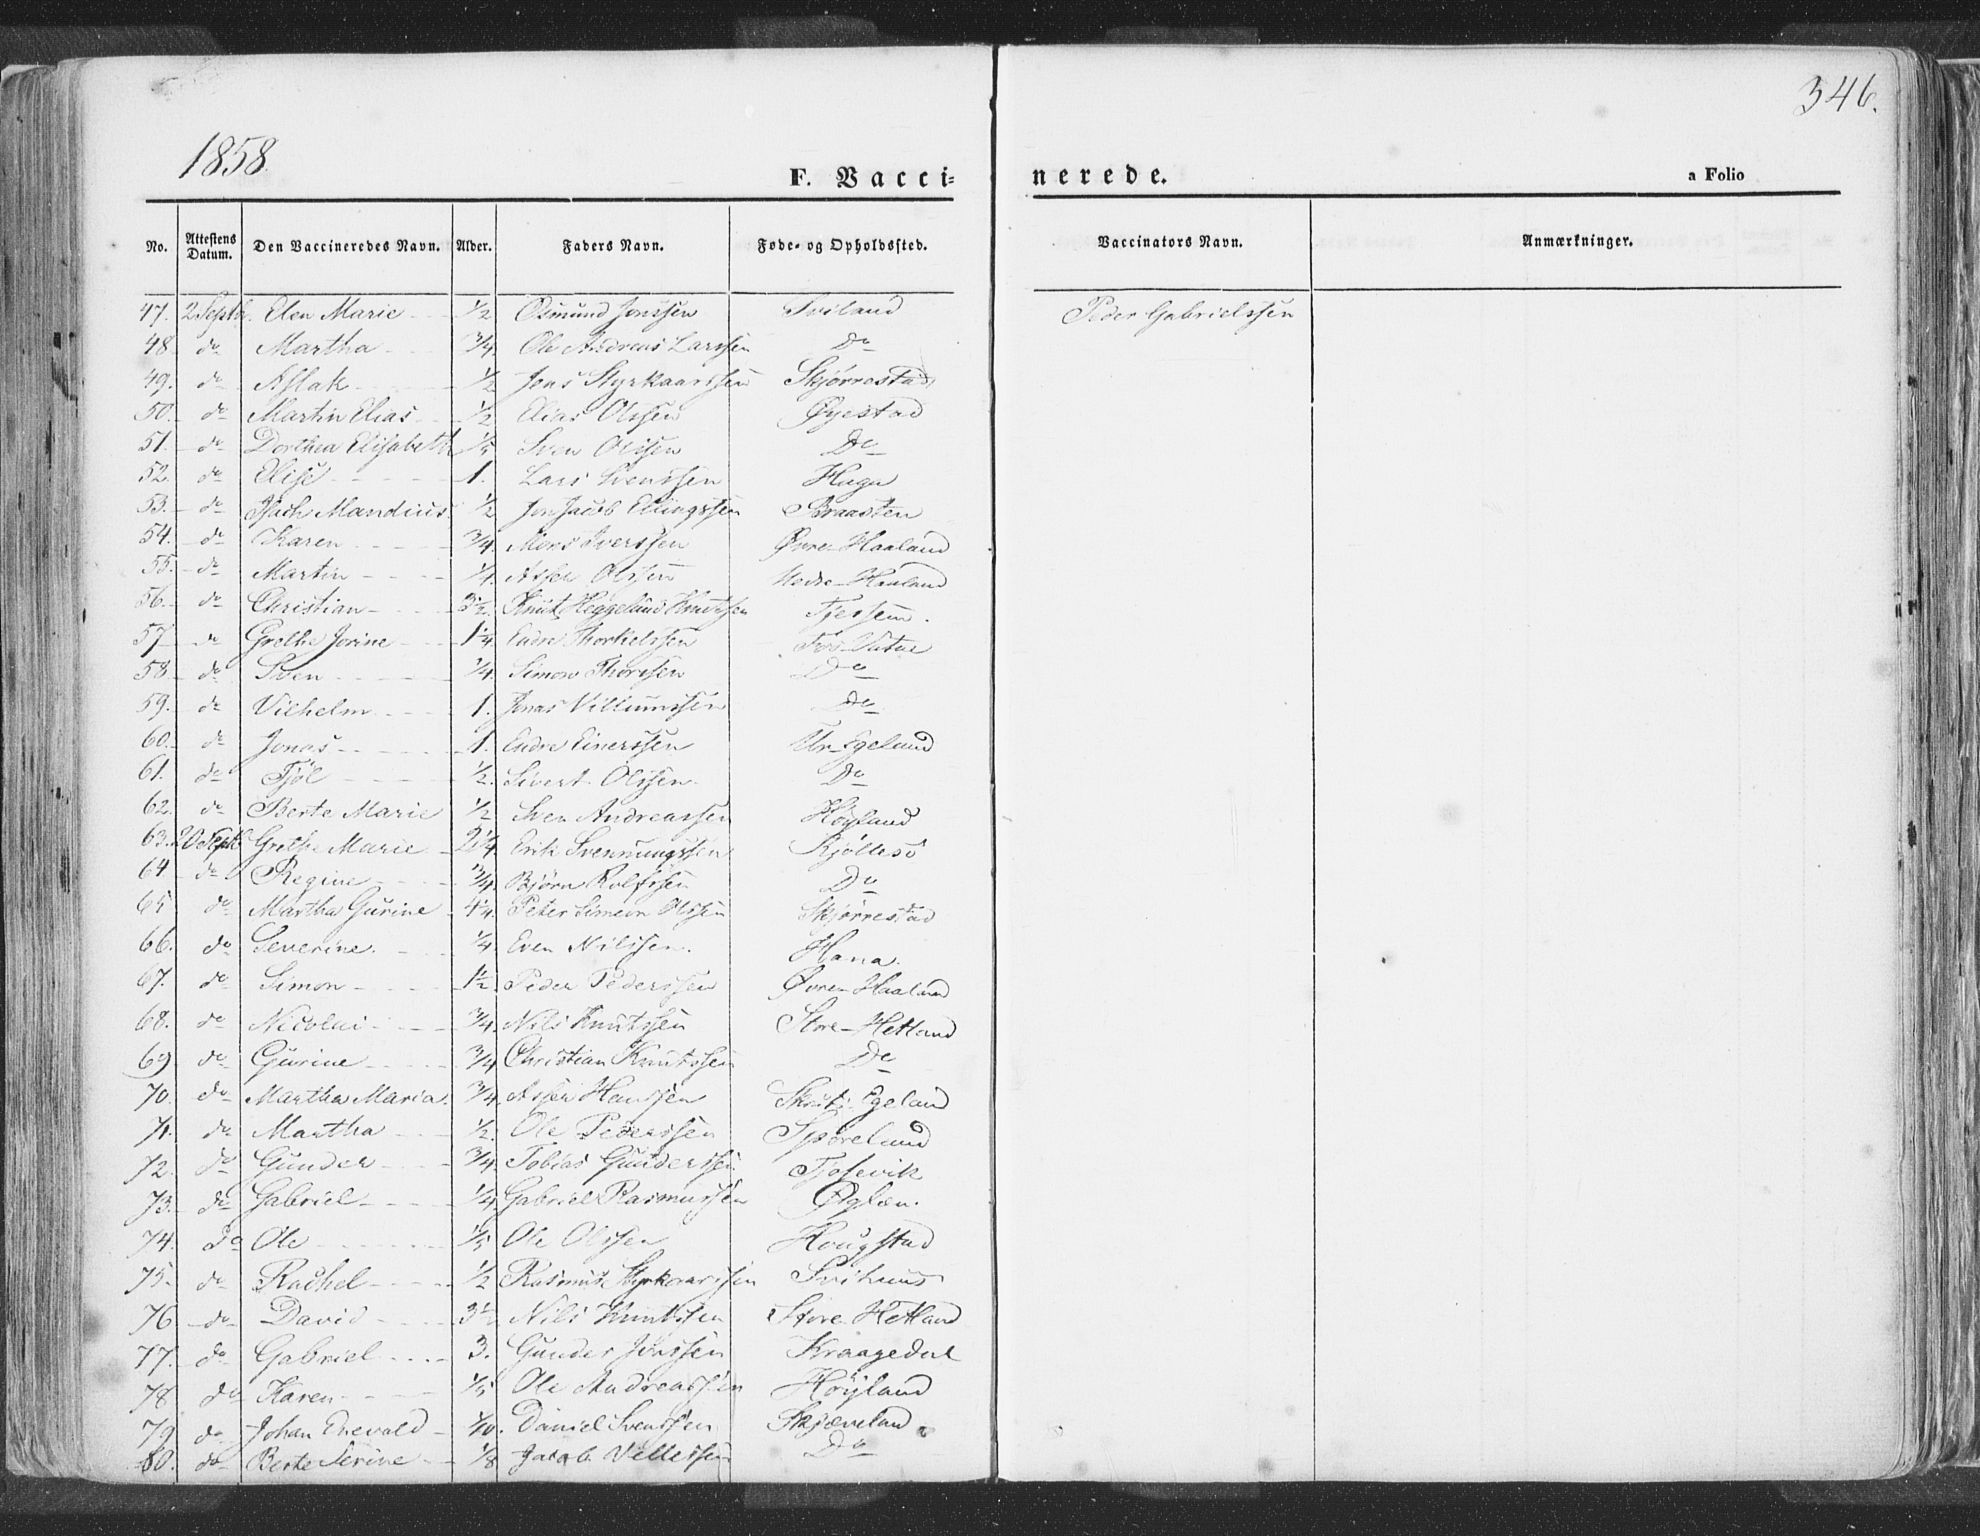 346.
1858.
F. Vacci= nerede. a Folio
No. Attestens Datum. Den Vaccineredes Navn. Alder. Faders Navn. Føde- og Opholdssted. Vaccinators Navn. Anmærkninger.
47. 2 Septb. Elen Marie 1/2 Osmund Jonssen Sviland Peder Gabrielssen
48. do Martha 3/4 Ole Andreas Larssen Do
49. do Aslak 1/2 Jens Styrkaarssen Skjørrestad
50. do Martin Elias 1/2 Elias Olssen Øyestad
51. do Dorthea Elisabeth 1/5 Sven Olssen Do
52. do Elise 1. Lars Svenssen Haga
53. do Mandius 1/2 Jon Jacob Ellingssen Braasten
54. do Karen 3/4. Mons Iverssen Øvre-Haaland
55. do Martin 1/4. Asser Olssen Nedre-Haaland
56. do Christian 3 1/2. Knut Heggelund Knutssen Tjessem.
57. do Grethe Jorine 1 1/4. Endre Thorkelssen Fos-Vatne
58 do Sven 1/4. Simon Thorssen Do
59. do Vilhelm 1. Jonas Villumssen Do
60. do Jonas 1. Endre Einerssen Ur-Egeland
61. do Tjøl 1/2. Sivert Olssen. Do
62. do Berte Marie 1/2 Sven Andreassen Høyland
63. 20 Septb Grethe Marie 2 1/4. Erik Svennungssen Kjøllesø
64 do Regine 3/4. Bjørn Rolfssen Do
65 do Martha Gurine 4 1/4. Peter Simeon Olssen Skjørrestad
66. do Severine. 1/4. Even Nilssen. Hana.
67. do Simon 1 1/2. Peder Pederssen Øvre-Haaland
68. do Nicolai 3/4. Nils Knutssen Store-Hetland
69 do Gurine 3/4 Christian Knutssen Do
70. do Martha Maria 3/4. Asser Hanssen Egeland
71. do Martha 1/2. Ole Pederssen
72. do Gunder 3/4. Tobias Gunderssen Tjosevik
73. do Gabriel 1/4. Gabriel Rasmussen
74. do Ole 1/5 Ole Olssen Hougstad
75. do Rachel 1/2 Rasmus Styrkaarssen Svihuus
76 do David 3 1/2 Nils Knutssen Store Hetland
77. do Gabriel 3. Gunder Jonssen Kraagedal
78 do Karen 1/5 Ole Andreassen Høyland
79 do Johan Enevald 1/10. Daniel Svenssen Skjæveland
80. do Berte Serine 1/8 Jacob Villessen Do